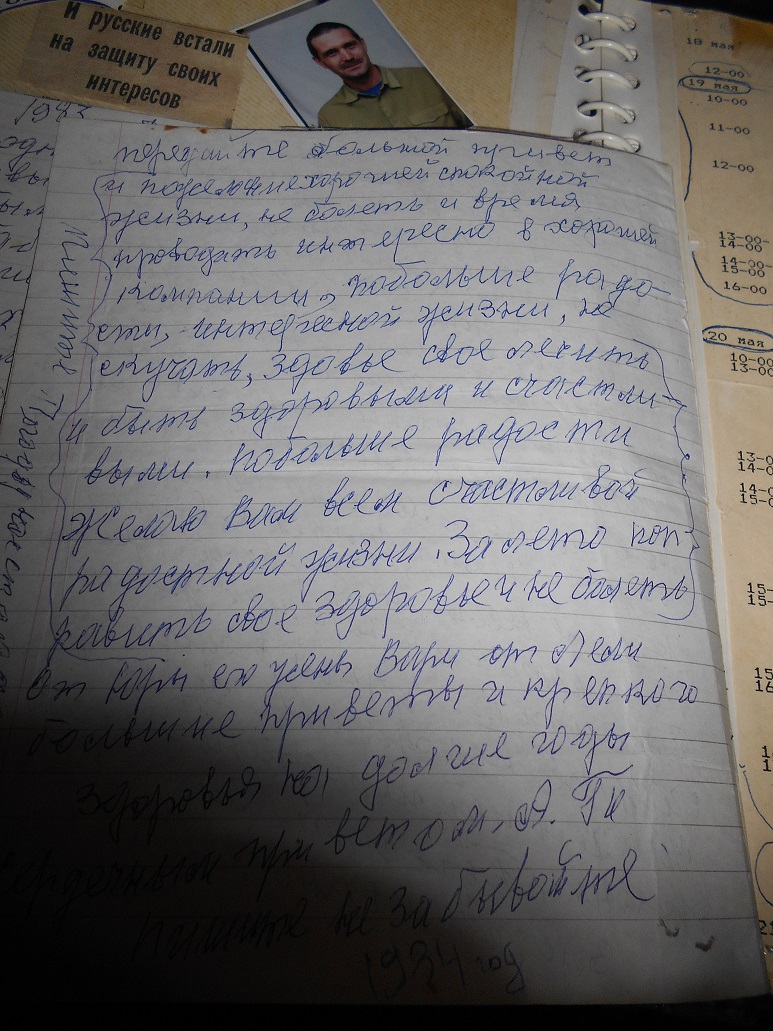 И русские встали
на защиту своих
интересов
передайте большой привет
и пожелание хорошей спокойной
жизни, не болеть и время
проводить интересно в хорошей
компании, побольше радо-
сти, интересной жизни, не
скучать, здовье свое
и быть здоровыми и счастли-
выми. побольше радости
Желаю Вам всем счастливой
радостной жизни. За лето поп-
равить свое здоровье и не болеть
от Юры его жены Вари от Лели
большие приветы и крепкого
здоровья на долгие годы
сердечным приветом. А.
пишите не забывайте
год
Пишите
18 мая
12-00
19 мая
10-00
11-00
12-00
13-00-
14-00
14-00-
15-00
16-00
20 мая
10-00
13-00
13-0
14-0
14-0
15-0
15-
15-
15
16